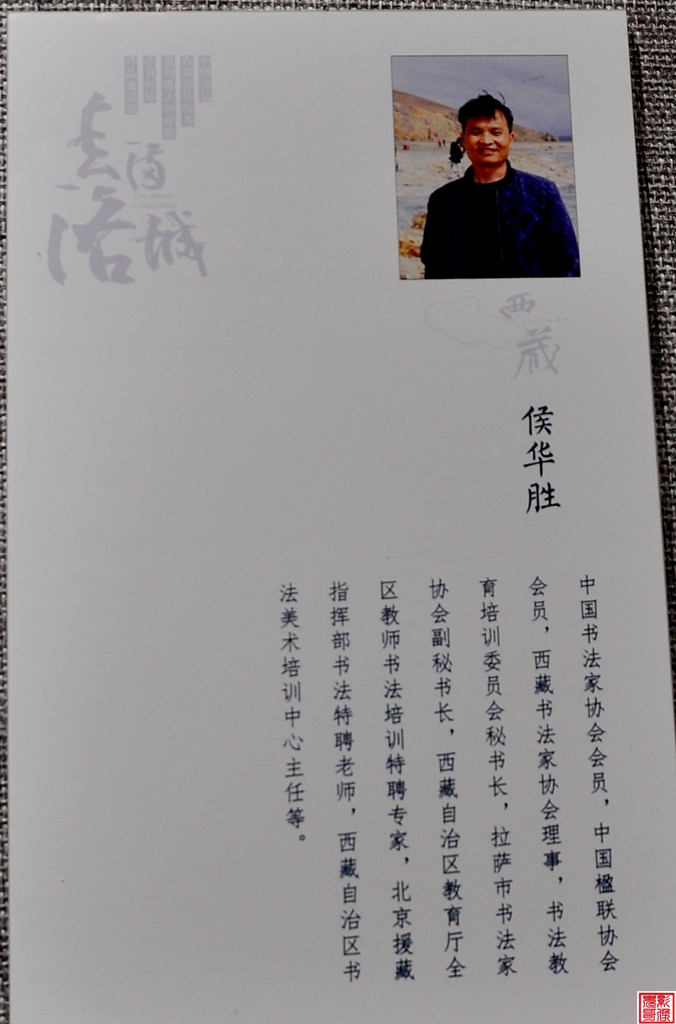 西藏
侯华胜
中国书法家协会会员，中国楹联协会
会员，西藏书法家协会理事，书法教
育培训委员会秘书长，拉萨市书法家
协会副秘书长，西藏自治区教育厅全
区教师书法培训特聘专家，北京援藏
指挥部书法特聘老师，西藏自治区书
法美术培训中心主任等。